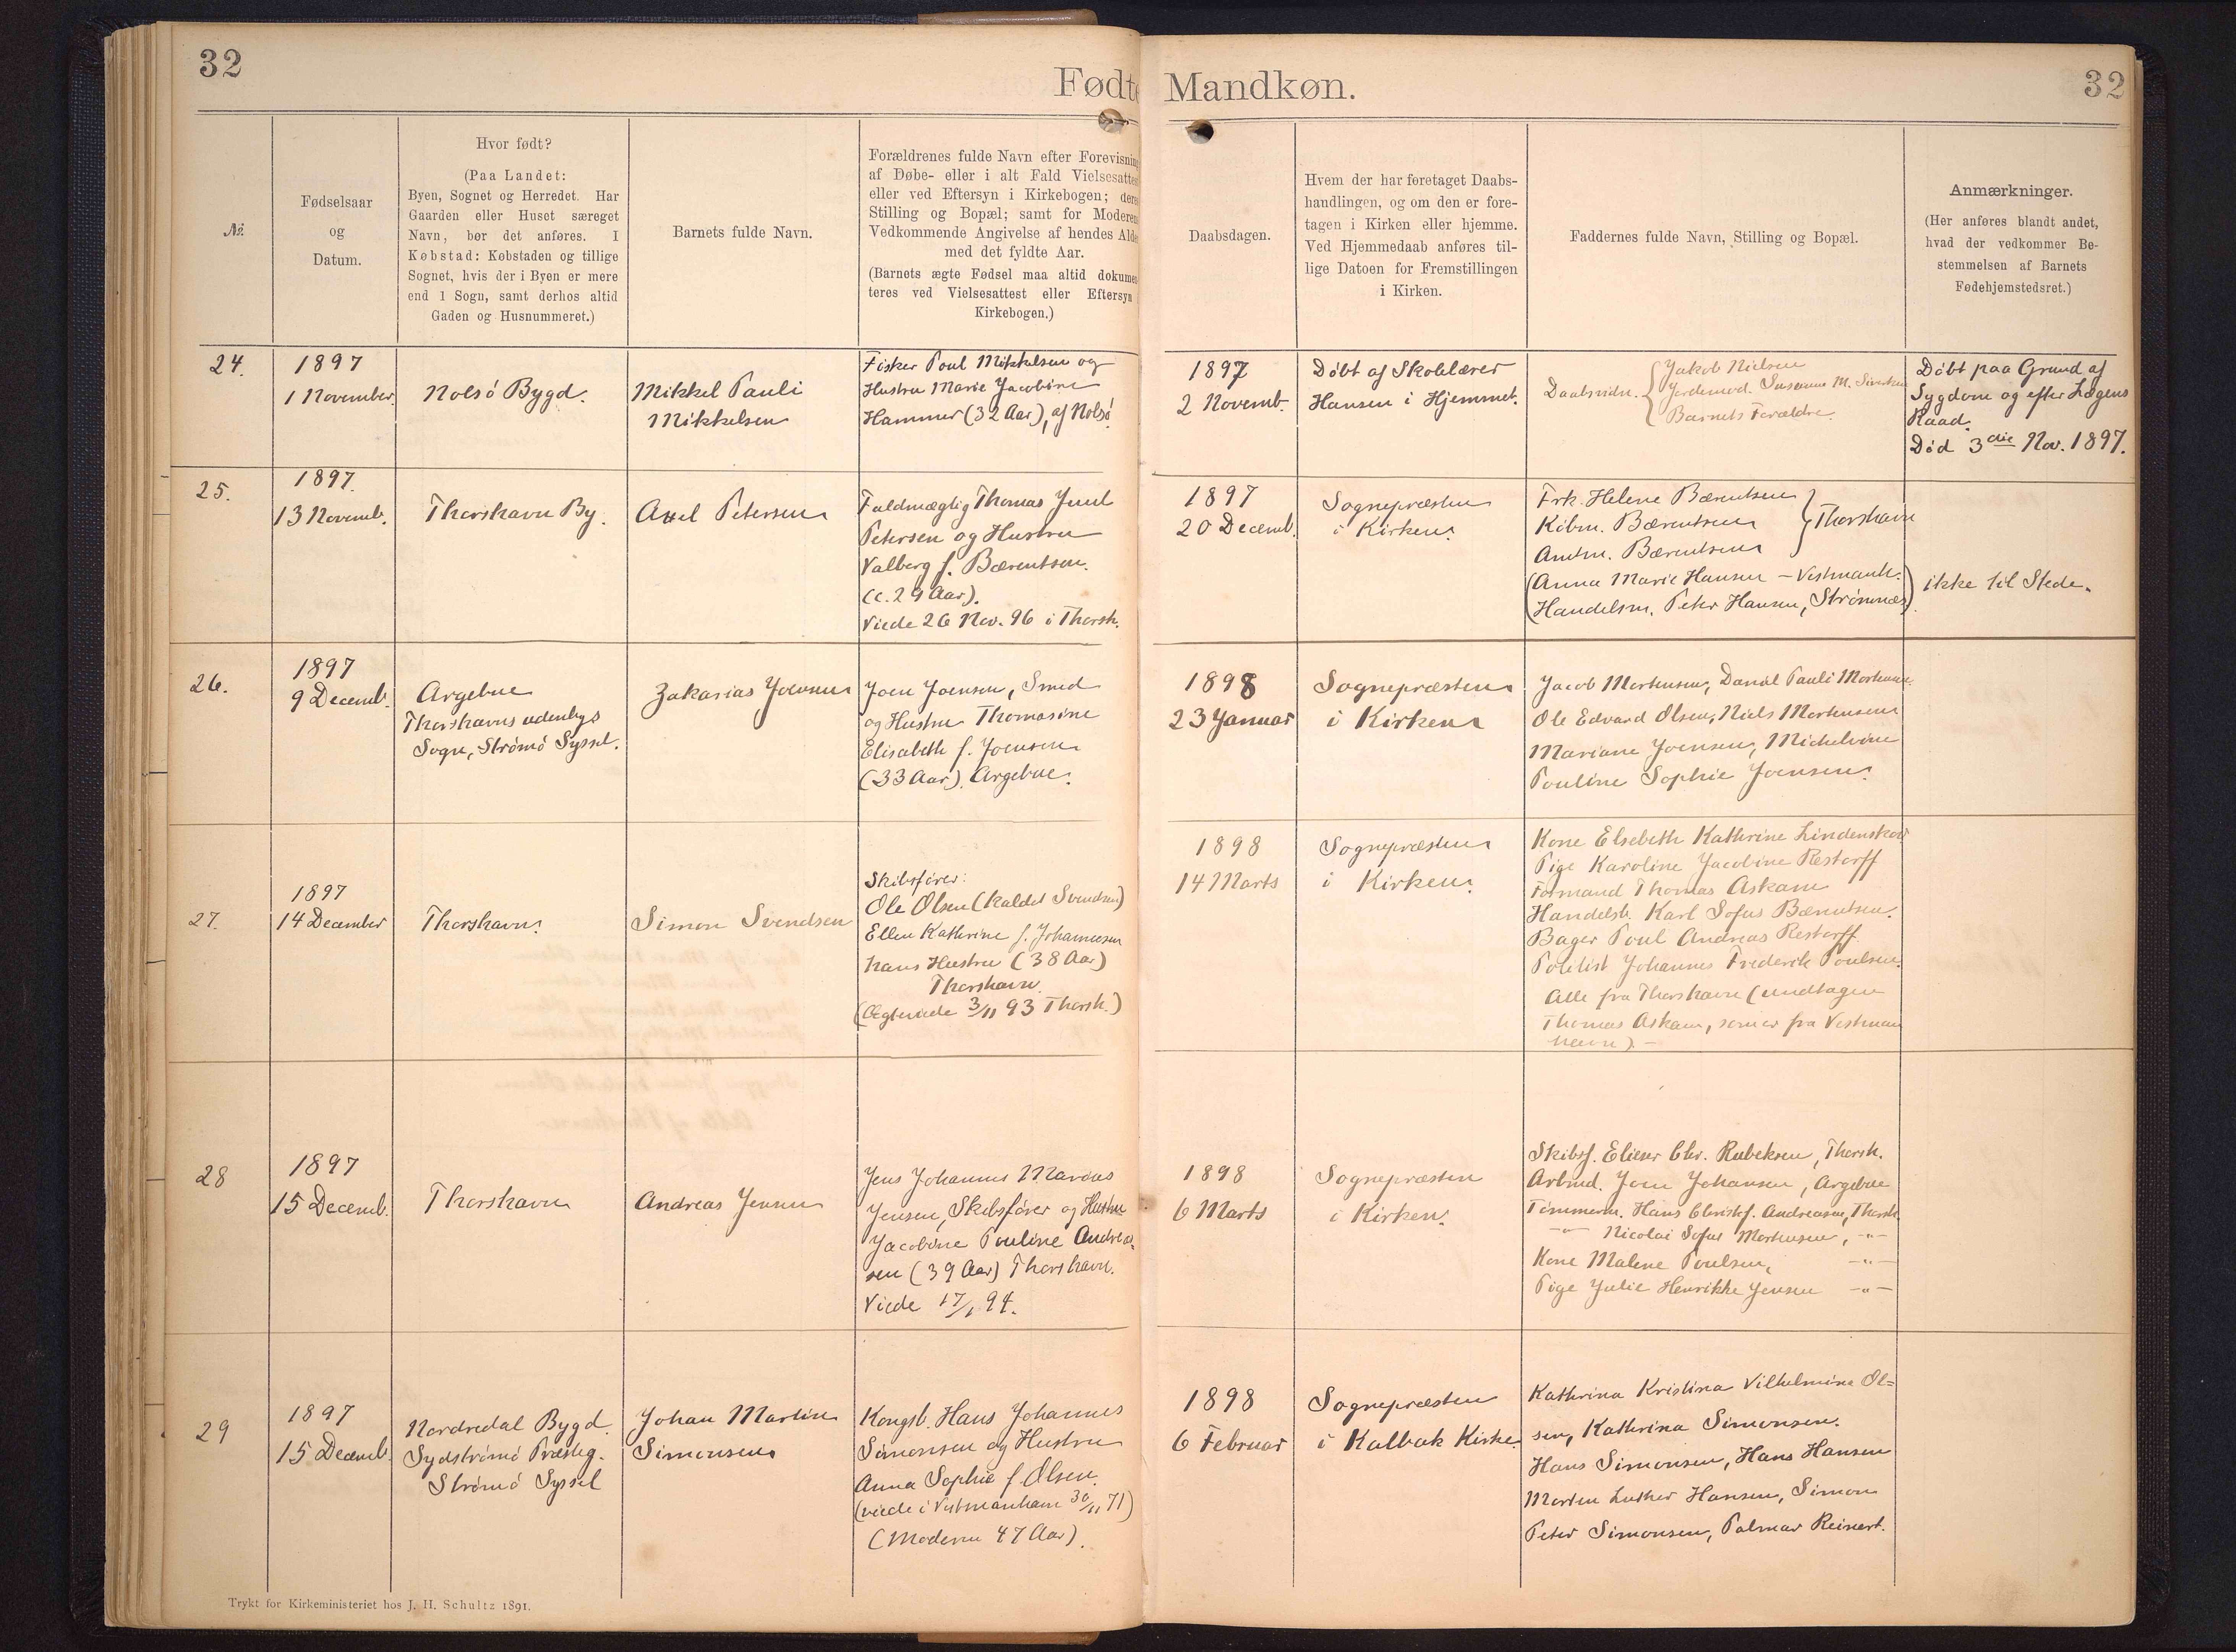 32
Fødte
Mandkøn.
32
№.
Fødselsaar
og
Datum.
Hvor født?
(Paa Landet:
Byen, Sognet og Herredet. Har
Gaarden eller Huset særeget
Navn, bør det anføres. I
Købstad: Købstaden og tillige
Sognet, hvis der i Byen er mere
end 1 Sogn, samt derhos altid
Gaden og Husnummeret.)
Barnets fulde Navn.
Forældrenes fulde Navn efter Forevisning
af Døbe- eller i alt Fald Vielsesattest
eller ved Eftersyn i Kirkebogen; deres
Stilling og Bopæl; samt for Moderens
Vedkommende Angivelse af hendes Alder
med det fyldte Aar.
(Barnets ægte Fødsel maa altid dokumen-
teres ved Vielsesattest eller Eftersyn i
Kirkebogen.)
Daabsdagen.
Hvem der har foretaget Daabs-
handlingen, og om den er fore-
tagen i Kirken eller hjemme.
Ved Hjemmedaab anføres til-
lige Datoen for Fremstillingen
i Kirken.
Faddernes fulde Navn, Stilling og Bopæl.
Anmærkninger.
(Her anføres blandt andet,
hvad der vedkommer Be-
stemmelsen af Barnets
Fødehjemstedsret.)
24.
1897
1 November.
Nolsö Bygd.
Mikkel Pauli
Mikkelsen
Fisker Poul Mikkelsen og
Hustru Marie Jacobine
Hammer (32 Aar), af Nolsö.
1897
2 Novemb.
Döbt af Skolelærer
Hansen i Hjemmet.
Daabsvidn.
Jakob Nielsen
Jordemod. Susanne M.
Barnets Forældre.
Döbt paa Grund af
Sygdom og efter Lægens
Raad.
Död 3die Nov. 1897.
25.
1897.
13 Novemb.
Thorshavn By.
Axel Petersen
Fuldmægtig Thomas Juul
Petersen og Hustru
Valberg f. Bærentsen.
(c. 29 Aar).
Viede 26 Nov. 96 i Thorsh.
1897
20 Decemb.
Sognepræsten
i Kirken.
Frk. Helene Bærentsen
Köbm. Bærentsen
Amtm. Bærentsen
Thorshavn
(Anna Marie Hansen – Vestmanh.
Handelsm. Peter Hansen, Strömnæs)
ikke til Stede.
26.
1897
9 Decemb.
Argeboe
Thorshavns udenbys
Sogn, Strömö Syssel.
Zakarias Joensen
Joen Joensen, Smed
og Hustru Thomasine
Elisabeth f. Joensen
(33 Aar). Argeboe.
1898
23 Januar
Sognepræsten
i Kirken
Jacob Mortensen, Daniel Pauli Mortensen.
Ole Edvard Olsen, Niels Mortensen
Mariane Joensen, Michelvine
Pouline Sophie Joensen.
27.
1897
14 December
Thorshavn.
Simon Svendsen
Skibsförer:
Ole Olsen (kaldet Svendsen)
Ellen Kathrine f. Johannesen
hans Hustru (38 Aar)
Thorshavn.
(Ægteviede 3/11 93 Thorsh.)
1898
14 Marts
Sognepræsten
i Kirken.
Kone Elsebeth Kathrine Lindenskov
Pige Karoline Jacobine Restorff
Formand Thomas Askam
Handelsb. Karl Sofus Bærentsen.
Bager Poul Andreas Restorff
Politist Johannes Frederik Poulsen.
Alle fra Thorshavn (undtagen
Thomas Askam, som er fra Vestman
havn). –
28
1897
15 Decemb.
Thorshavn
Andreas Jensen
Jens Johannes Marius
Jensen, Skibsförer og Hustru
Jacobine Pouline Andrea-
sen (39 Aar) Thorshavn.
Viede 17/1 94.
1898
6 Marts
Sognepræsten
i Kirken.
Skibsf. Elieser Chr. Rubeksen, Thorsh.
Arbmd. Joen Johansen, Argeboe
Tömmerm. Hans Christf. Andreasen, Thorsh.
–"– Nicolai Sofus Mortensen, –"–
Kone Malene Poulsen, –"–
Pige Julie Henrikke Jensen –"–
29
1897
15 Decemb.
Nordredal Bygd.
Sydströmö Præsteg.
Strömö Syssel
Johan Martin
Simonsen
Kongsb. Hans Johannes
Simonsen og Hustru
Anna Sophie f. Olsen.
(viede i Vestmanhavn 30/11 71)
(Moderen 47 Aar).
1898
6 Februar
Sognepræsten
i Kalbak Kirke.
Kathrina Kristina Vilhelmine Ol=
sen, Kathrina Simonsen.
Hans Simonsen, Hans Hansen
Morten Luther Hansen, Simon
Peter Simonsen, Palmar Reinert.
Trykt for Kirkeministeriet hos J. H. Schultz 1891.